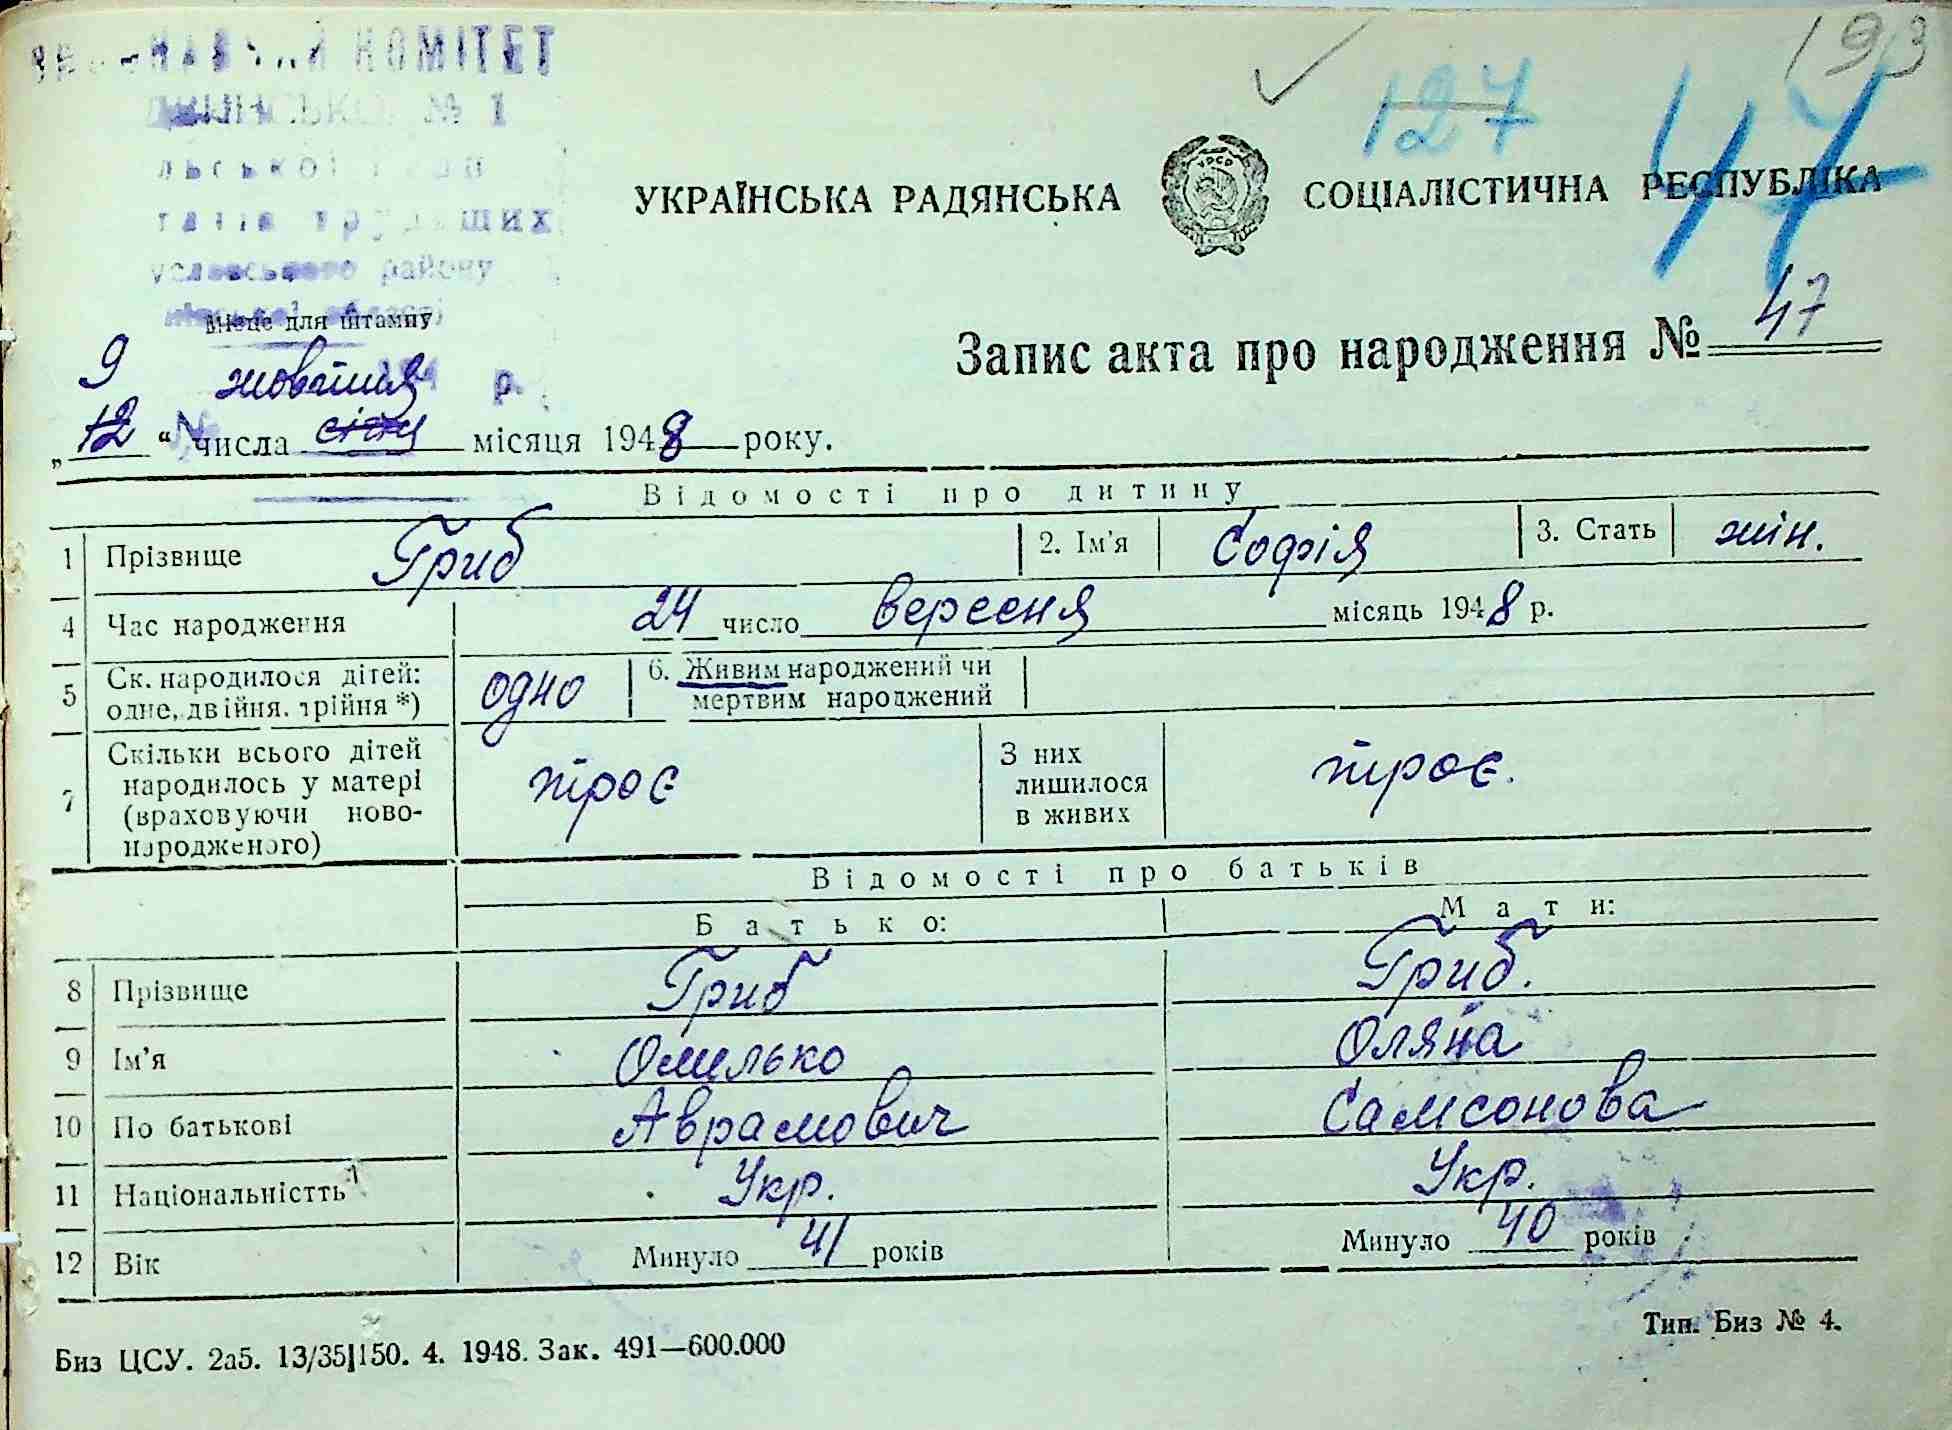 КОМІТЕТ
№ 1
району
193
127
47
УКРАЇНСЬКА РАДЯНСЬКА СОЦІАЛІСТИЧНА РЕСПУБЛІКА
УРСР
Місце для штампу
Запис акта про народження № 47
9 жовтня р.
„12“ числа січня місяця 1948 року.
Відомості про дитину
1 Прізвище Гриб 2. Ім'я Софія 3. Стать жін.
4 Час народження 24 число вересня місяць 1948 р.
5 Ск. народилося дітей: одне, двійня, трійня *) одно 6. Живим народжений чи мертвим народжений
7 Скільки всього дітей народилось у матері (враховуючи ново-народженого) троє З них лишилося в живих троє.
Відомості про батьків
Батько: Мати:
8 Прізвище Гриб Гриб.
9 Ім'я Омилько Оляна
10 По батькові Аврамович Самсонова
11 Національністть Укр. Укр.
12 Вік Минуло 41 років Минуло 40 років
Биз ЦСУ. 2а5. 13/35|150. 4. 1948. Зак. 491—600.000
Тип. Биз № 4.